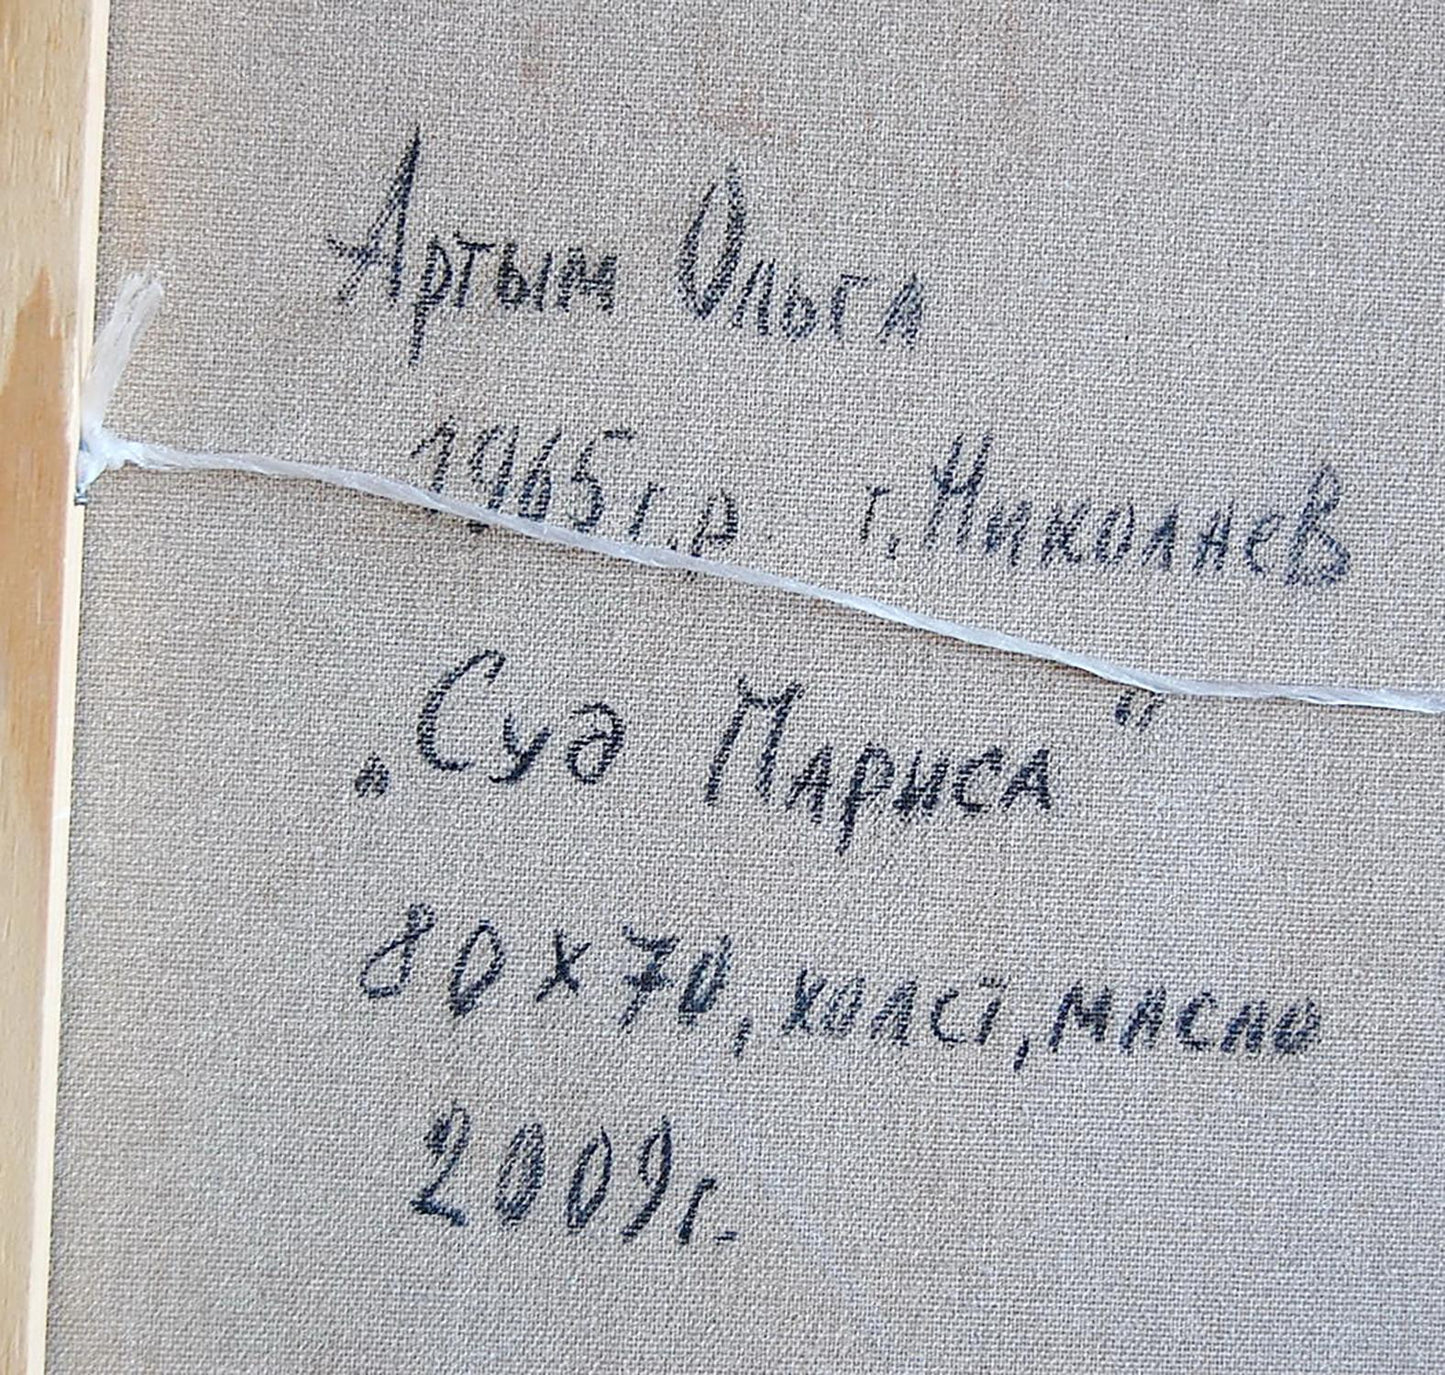 Артым Ольга
1965г.р г. Николаев
„Суд Мариса“
80х70, холст, масло
2009г.